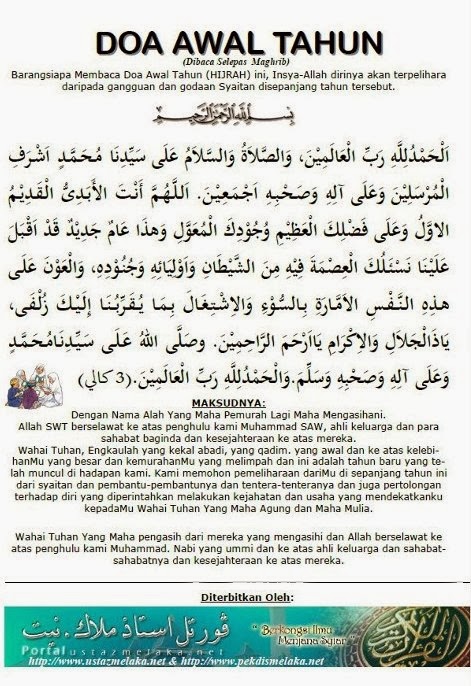 DOA AWAL TAHUN
(Dibaca Selepas Maghrib)
Barangsiapa Membaca Doa Awal Tahun (HIJRAH) ini, Insya-Allah dirinya akan terpelihara
daripada gangguan dan godaan Syaitan disepanjang tahun tersebut.
بسم الله الرحمن الرحيم
اَلْحَمْدُلِلَّهِ رَبِّ الْعَالَمِيْنَ، وَالصَّلاَةُ وَالسَّلاَمُ عَلَى سَيِّدِنَا مُحَمَّدٍ اَشْرَفِ
الْمُرْسَلِيْنَ وَعَلَى آلِهِ وَصَحْبِهِ اَجْمَعِيْنَ. اَللَّهُمَّ أَنْتَ الْأَبَدِىُّ الْقَدِيْمُ
الاوَّلُ وَعَلَى فَضْلِكَ الْعَظِيْمِ وُجُوْدِكَ الْمُعَوَّلِ وَهذَا عَامٌ جَدِيْدٌ قَدْ اَقْبَلَ
عَلَيْنَا نَسْئَلُكَ الْعِصْمَةَ فِيْهِ مِنَ الشَّيْطَانِ وَاَوْلِيَائِهِ وَجُنُوْدِهِ، وَالْعَوْنَ عَلَى
هذِهِ النَّفْسِ الاَمَّارَةِ بِالسُّوْءِ وَالاِشْتِغَالَ بِمَا يُقَرِّبُنَا إِلَيْكَ زُلْفَى،
يَاذَالْجَلاَلِ وَالاِكْرَامِ يَااَرْحَمَ الرَّاحِمِيْنَ. وصَلَّى اللهُ عَلَى سَيِّدِنَامُحَمَّدٍ
وَعَلَى آلِهِ وَصَحْبِهِ وَسَلَّمَ.وَالْحَمْدُلِلَّهِ رَبِّ الْعَالَمِيْنَ.(3 كالي)
MAKSUDNYA:
Dengan Nama Alah Yang Maha Pemurah Lagi Maha Mengasihani.
Allah SWT berselawat ke atas penghulu kami Muhammad SAW, ahli keluarga dan para
sahabat baginda dan kesejahteraan ke atas mereka.
Wahai Tuhan, Engkaulah yang kekal abadi, yang qadim. yang awal dan ke atas kelebi-
hanMu yang besar dan kemurahanMu yang melimpah dan ini adalah tahun baru yang te-
lah muncul di hadapan kami. Kami memohon pemeliharaan dariMu di sepanjang tahun ini
dari syaitan dan pembantu-pembantunya dan tentera-tenteranya dan juga pertolongan
terhadap diri yang diperintahkan melakukan kejahatan dan usaha yang mendekatkanku
kepadaMu Wahai Tuhan Yang Maha Agung dan Maha Mulia.
Wahai Tuhan Yang Maha pengasih dari mereka yang mengasihi dan Allah berselawat ke
atas penghulu kami Muhammad. Nabi yang ummi dan ke atas ahli keluarga dan sahabat-
sahabatnya dan kesejahteraan ke atas mereka.
Diterbitkan Oleh:
ڤورتل استاذ ملاك. نيت
" Berkongsi Ilmu
Menjana Sejar "
Portal
ustazmelaka.net
http://www.ustazmelaka.net & http://www.pekdismelaka.net